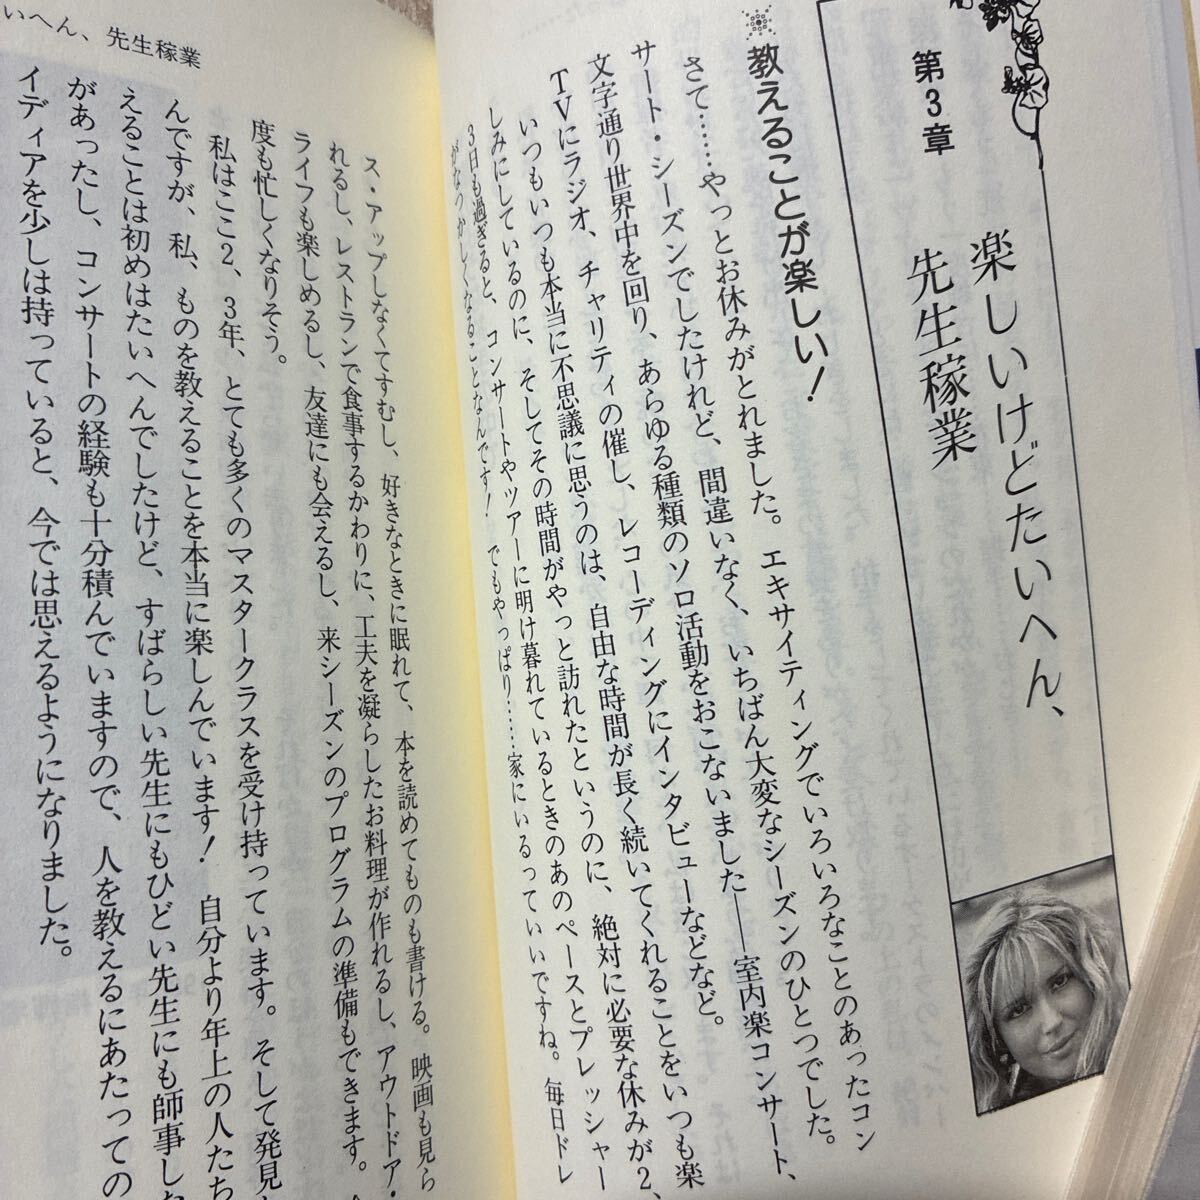 第3章
楽しいけどたいへん、
先生稼業
教えることが楽しい！
さて……やっとお休みがとれました。エキサイティングでいろいろなことのあったコン
サート・シーズンでしたけれど、間違いなく、いちばん大変なシーズンのひとつでした。
文字通り世界中を回り、あらゆる種類のソロ活動をおこないました——室内楽コンサート、
TVにラジオ、チャリティの催し、レコーディングにインタビューなどなど。
いつもいつも本当に不思議に思うのは、自由な時間が長く続いてくれることをいつも楽
しみにしているのに、そしてその時間がやっと訪れたというのに、絶対に必要な休みが2、
3日も過ぎると、コンサートやツアーに明け暮れているときのあのペースとプレッシャー
がなつかしくなることなんです！　でもやっぱり……家にいるっていいですね。毎日ドレ
いへん、先生稼業
ス・アップしなくてすむし、好きなときに眠れて、本を読めてものも書ける。映画も見ら
れるし、レストランで食事するかわりに、工夫を凝らしたお料理が作れるし、アウトドア・
ライフも楽しめるし、友達にも会えるし、来シーズンのプログラムの準備もできます。
度も忙しくなりそう。
私はここ2、3年、とても多くのマスタークラスを受け持っています。そして発見
んですが、私、ものを教えることを本当に楽しんでいます！　自分より年上の人たち
えることは初めはたいへんでしたけど、すばらしい先生にもひどい先生にも師事し
があったし、コンサートの経験も十分積んでいますので、人を教えるにあたっての
イディアを少しは持っていると、今では思えるようになりました。